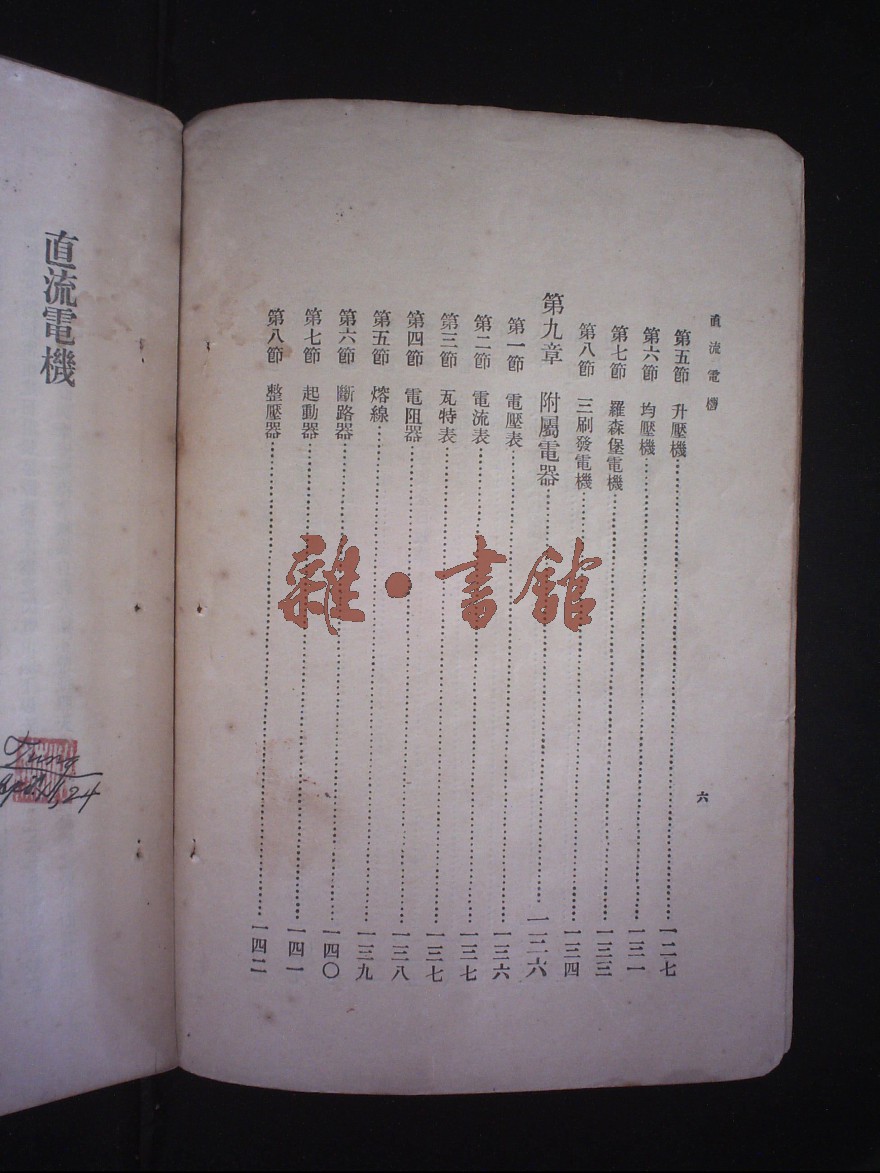 直流電機
第五節　升壓機……一二七
第六節　均壓機……一三一
第七節　羅森堡電機……一三三
第八節　三刷發電機……一三四
第九章　附屬電器……一二六
第一節　電壓表……一三六
第二節　電流表……一三七
第三節　瓦特表……一三七
第四節　電阻器……一三八
第五節　熔線……一三九
第六節　斷路器……一四〇
第七節　起動器……一四一
第八節　整壓器……一四二
六
雜·書館
直流電機
24